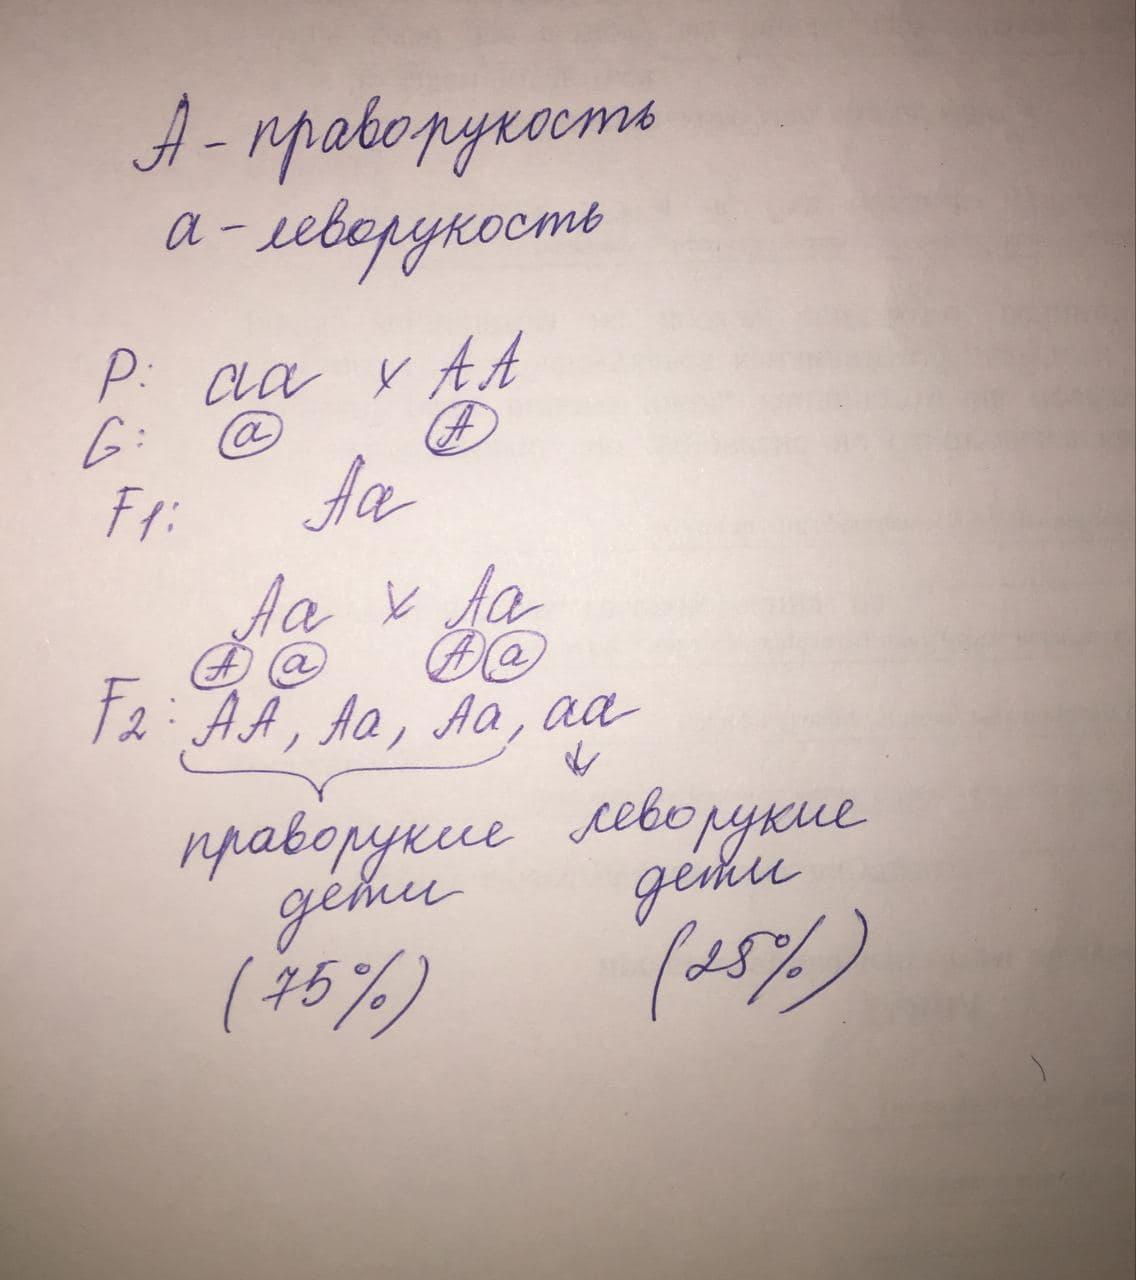 А - праворукость
а - леворукость
P: aa x AA
G: a A
F1: Aa
Aa x Aa
A a A a
F2: AA, Aa, Aa, aa
праворукие леворукие
дети дети
(75%) (25%)